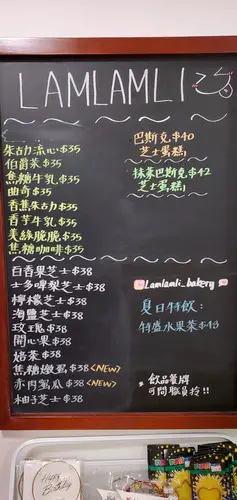 LAMLAMLI
朱古力流心$35
伯爵茶$35
焦糖牛乳$35
曲奇$35
香蕉朱古力$35
香芋牛乳$35
美綠脆脆$35
焦糖咖啡$35
百香果芝士$38
士多啤梨芝士$38
檸檬芝士$38
海鹽芝士$38
玫瑰$38
開心果$38
焙茶$38
焦糖燉蛋$38 <NEW>
赤肉蜜瓜$38 <NEW>
柚子芝士$38
巴斯克$40
芝士蛋糕
抹茶巴斯克$42
芝士蛋糕
Lamlamli_bakery
夏日特飲:
特盛水果茶$43
飲品餐牌
可問職員拎!!
Happy
Birthday